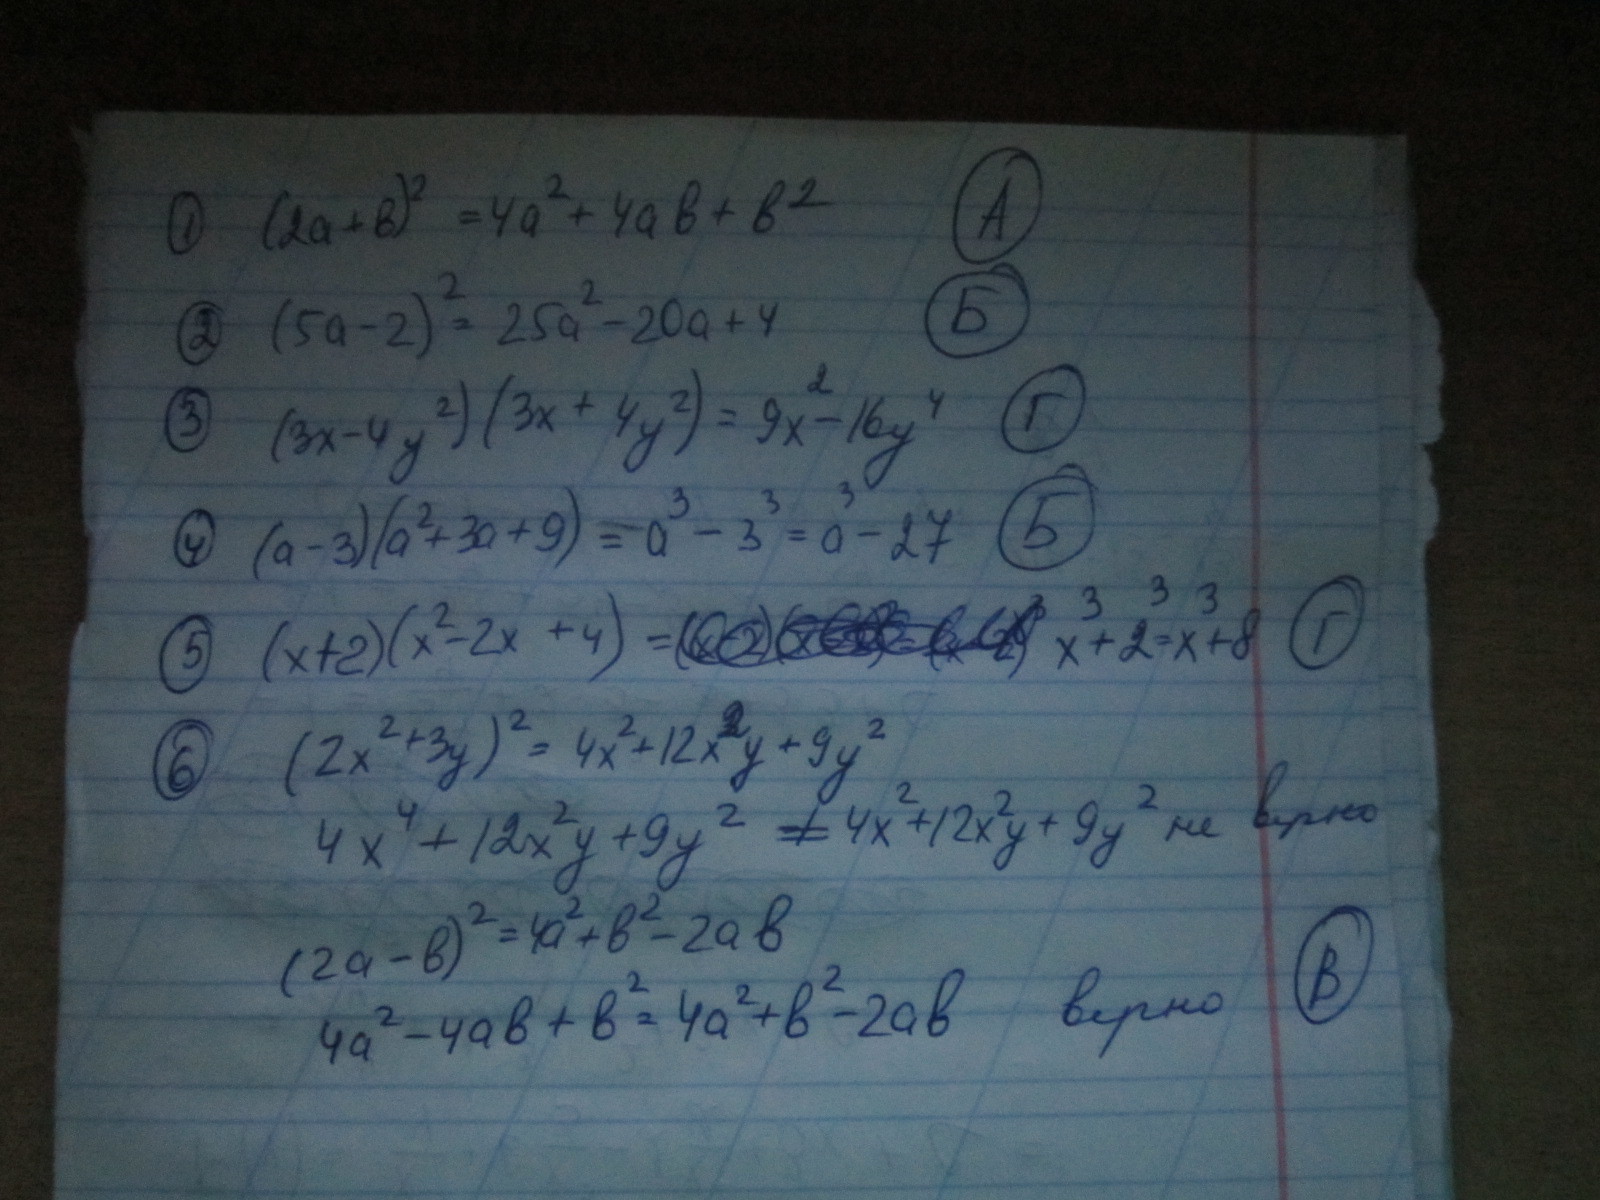 ① (2a+в)² = 4a² + 4aв + в² А
② (5a-2)² = 25a² - 20a + 4 Б
③ (3x-4y²)(3x+4y²) = 9x² - 16y⁴ Г
④ (a-3)(a²+3a+9) = a³ - 3³ = a³ - 27 Б
⑤ (x+2)(x²-2x+4) = x³+2³=x³+8 Г
⑥ (2x²+3y)² = 4x²+12x²y+9y²
4x⁴+12x²y+9y² ≠ 4x²+12x²y+9y² не верно
(2a-в)² = 4a²+в²-2aв
4a²-4aв+в² = 4a²+в²-2aв верно В